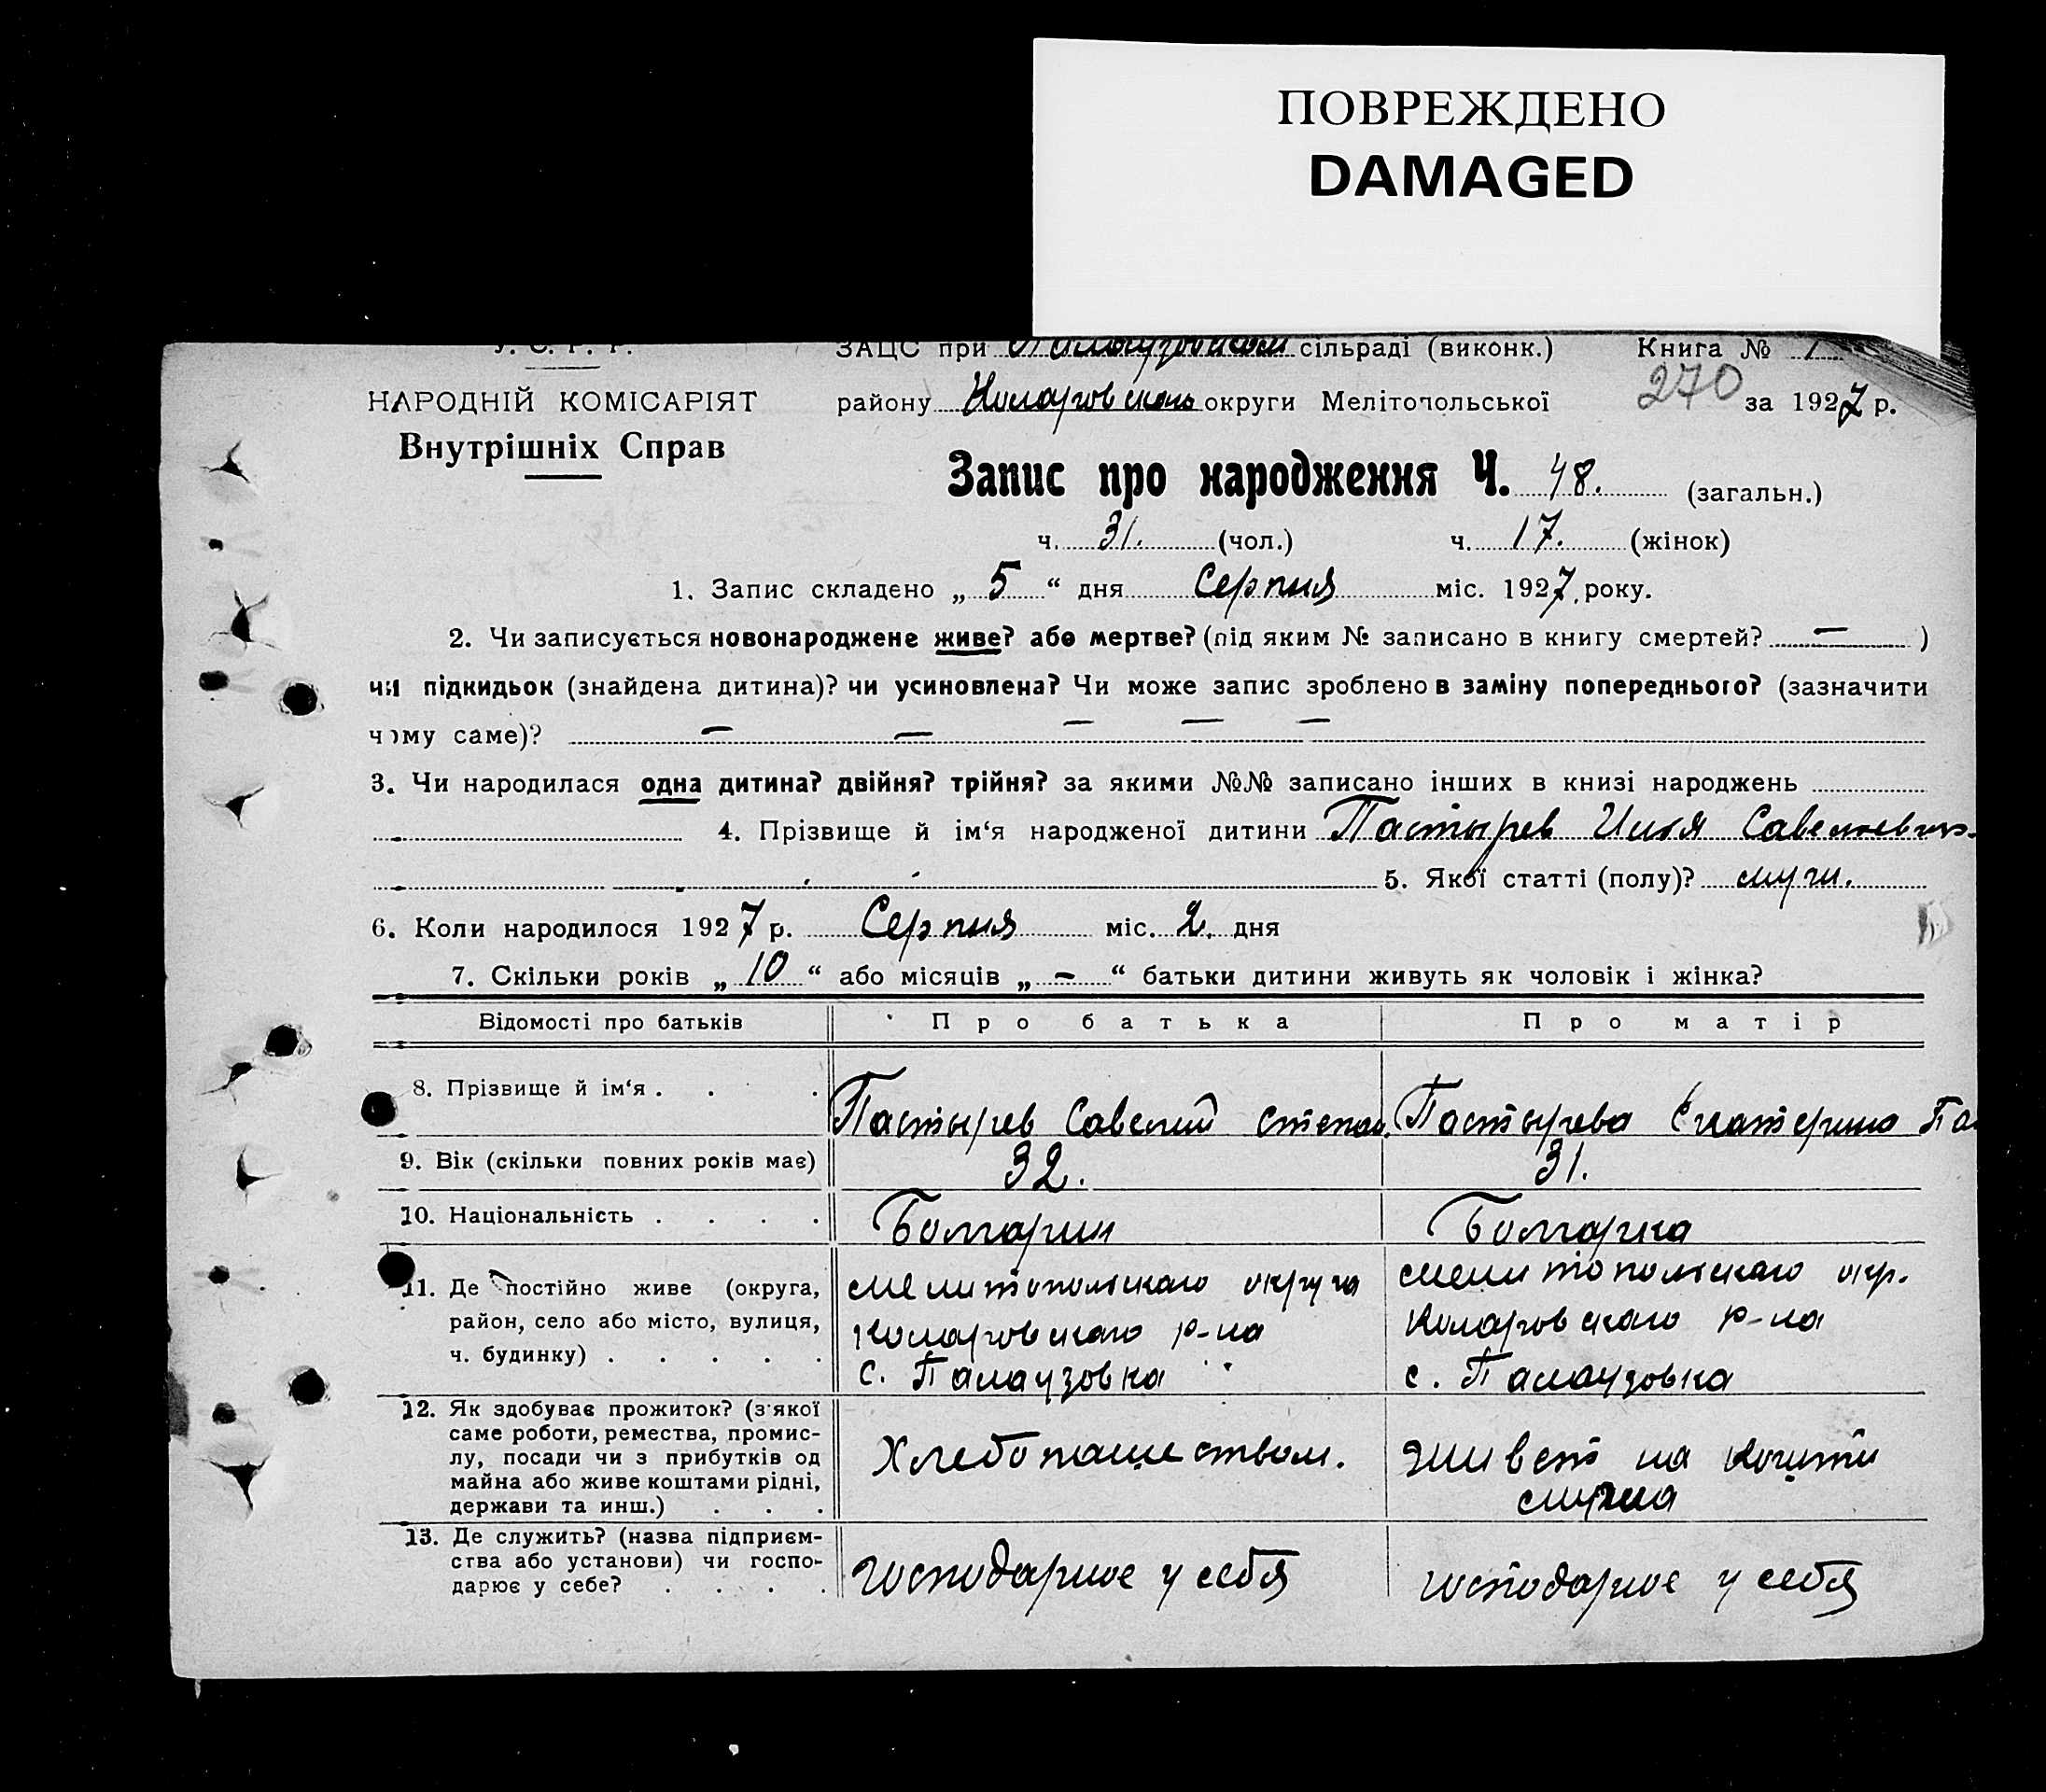 ПОВРЕЖДЕНО
DAMAGED
У. С. Р. Р.
ЗАЦС при Палаузовском сільраді (виконк.) Книга № 1
270
НАРОДНІЙ КОМІСАРІЯТ
району Комаровском округи Мелітопольської за 1927 р.
Внутрішніх Справ
Запис про народження Ч. 48. (загальн.)
ч. 31. (чол.) ч. 17. (жінок)
1. Запис складено „ 5 “ дня Серпня міс. 1927, року.
2. Чи записується новонароджене живе? або мертве? (під яким № записано в книгу смертей? — )
чи підкидьок (знайдена дитина)? чи усиновлена? Чи може запис зроблено в заміну попереднього? (зазначити
чому саме)? — — — — —
3. Чи народилася одна дитина? двійня? трійня? за якими №№ записано інших в книзі народжень
4. Прізвище й ім‘я народженої дитини Пастырев Илья Савельевич
5. Якої статті (полу)? муж.
6. Коли народилося 1927 р. Серпня міс. 2. дня
7. Скільки років „ 10 “ або місяців „ — “ батьки дитини живуть як чоловік і жінка?
Відомості про батьків Про батька Про матір
8. Прізвище й ім‘я . . . Пастырев Савелий Степан. Пастырева Екатерина Па
9. Вік (скільки повних років має) 32. 31.
10. Національність . . . . Болгарин Болгарка
11. Де постійно живе (округа, Мелитопольскаго округа Мелитопольскаго окр.
район, село або місто, вулиця, Комаровскаго р-на Комаровскаго р-на
ч. будинку) . . . . . с. Палаузовка с. Палаузовка
12. Як здобуває прожиток? (з якої
саме роботи, ремества, промис-
лу, посади чи з прибутків од Хлебопашеством. Живет на кошти
майна або живе коштами рідні, мужа
держави та инш.) . . .
13. Де служить? (назва підприєм-
ства або установи) чи госпо- господарное у себя господарное у себя
дарює у себе? . . . .